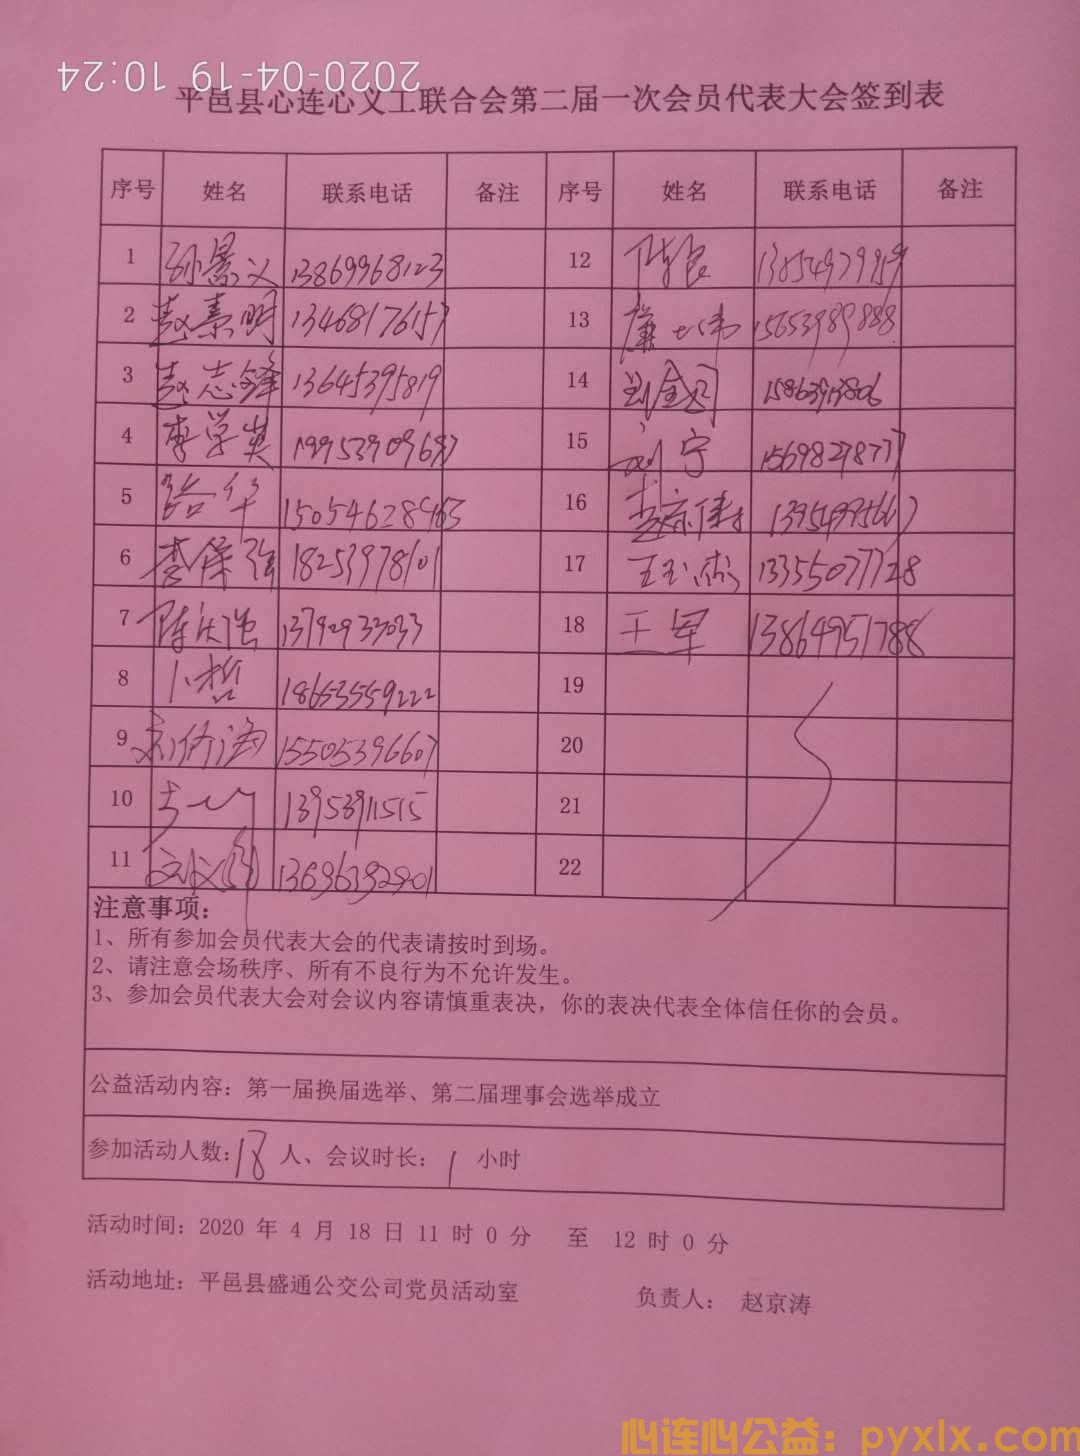 2020-04-19 10:24
平邑县心连心义工联合会第二届一次会员代表大会签到表
序号 姓名 联系电话 备注 序号 姓名 联系电话 备注
1 孙景义 13869968123 12 陈良
2 赵素明 13468176157 13 15653989888
3 赵志锋 13645395819 14 15863913806
4 李学英 19953909697 15 刘宁 15698298777
5 路华 15054628965 16 13954995667
6 李保强 18253978101 17 王玉杰 13355077728
7 陈庆强 13792933033 18 王军 13864951788
8 卜哲 18653559222 19
9 15505396607 20
10 13953911515 21
11 刘文 13696392901 22
注意事项：
1、所有参加会员代表大会的代表请按时到场。
2、请注意会场秩序、所有不良行为不允许发生。
3、参加会员代表大会对会议内容请慎重表决，你的表决代表全体信任你的会员。
公益活动内容：第一届换届选举、第二届理事会选举成立
参加活动人数：18人、会议时长：1 小时
活动时间：2020 年 4 月 18 日 11 时 0 分 至 12 时 0 分
活动地址：平邑县盛通公交公司党员活动室 负责人： 赵京涛
心连心公益：pyxlx.com